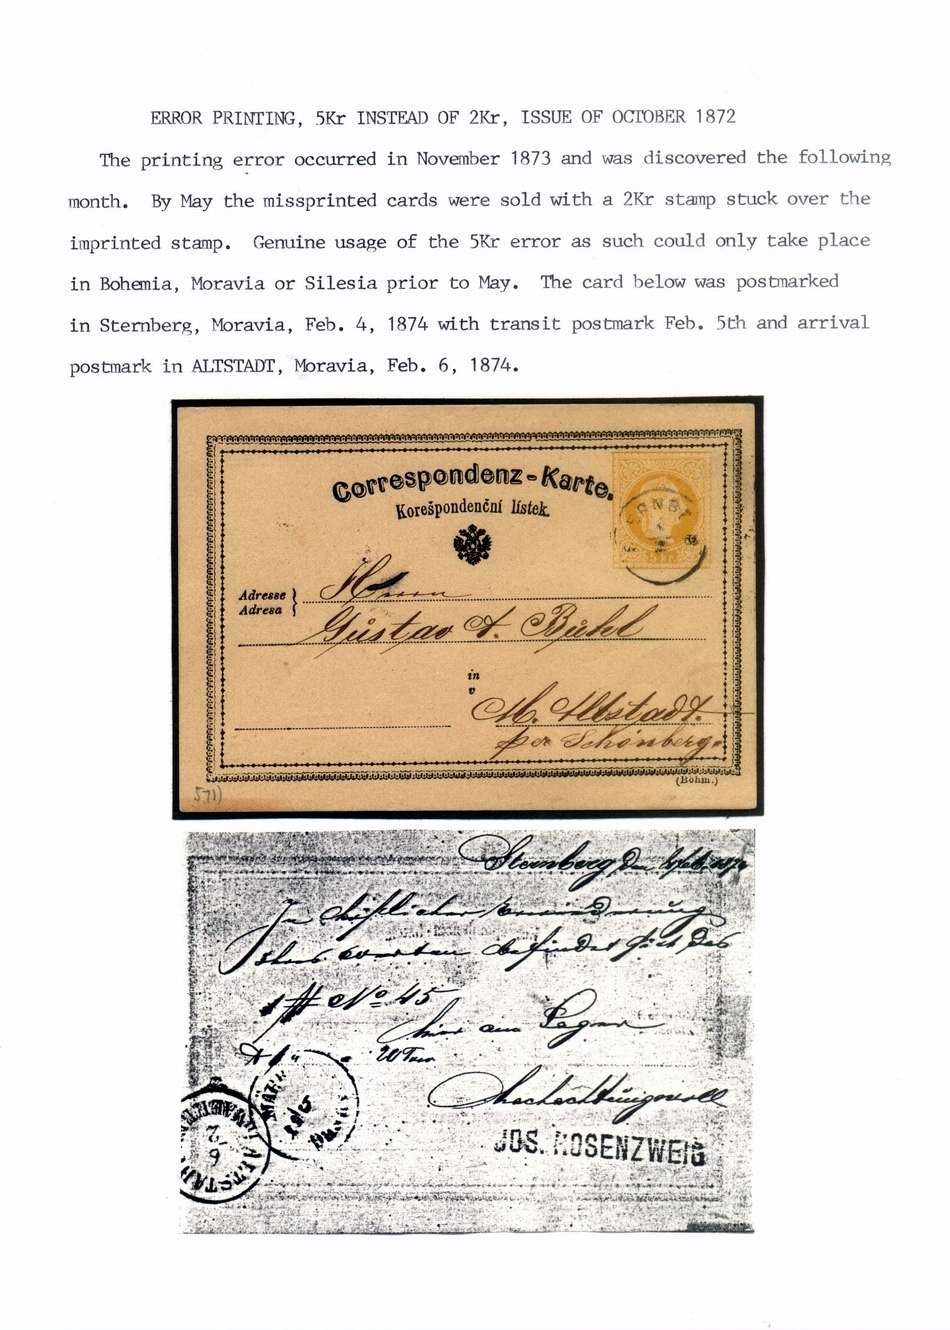 ERROR PRINTING, 5Kr INSTEAD OF 2Kr, ISSUE OF OCTOBER 1872
The printing error occurred in November 1873 and was discovered the following
month. By May the missprinted cards were sold with a 2Kr stamp stuck over the
imprinted stamp. Genuine usage of the 5Kr error as such could only take place
in Bohemia, Moravia or Silesia prior to May. The card below was postmarked
in Sternberg, Moravia, Feb. 4, 1874 with transit postmark Feb. 5th and arrival
postmark in ALTSTADT, Moravia, Feb. 6, 1874.
Correspondenz-Karte.
Korešpondenční lístek.
Adresse
Adresa
Herrn
Gustav A. Bühl
in
v
M. Altstadt.
per Schönberg
(Böhm.)
571)
Sternberg den
befindet sich das
1 # No 45
hier am Lager
Hochachtungsvoll
JOS. ROSENZWEIG
ALTSTADT
6
2